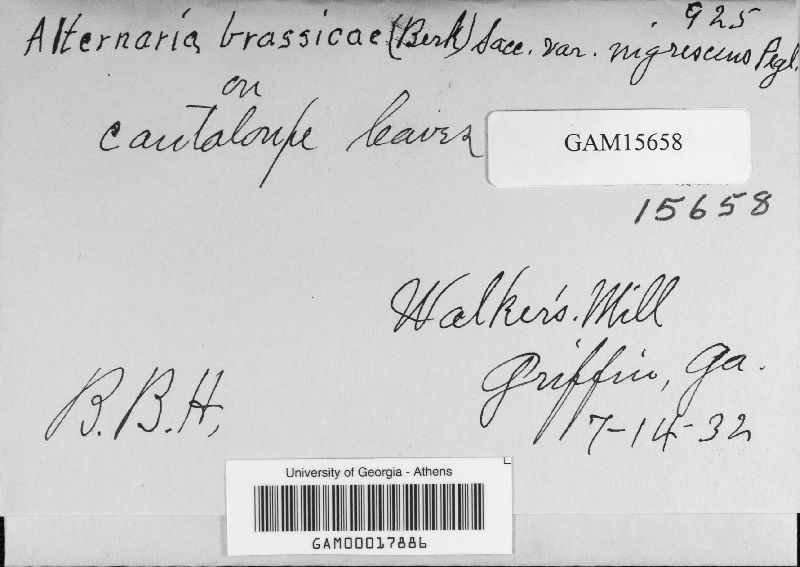 925
Alternaria brassicae (Berk) Sacc. var. nigrescens Pegl.
on
cantaloupe leaves
GAM15658
15658
Walker's Mill
Griffin, Ga.
7-14-32
B.B.H,
University of Georgia - Athens
GAM00017886